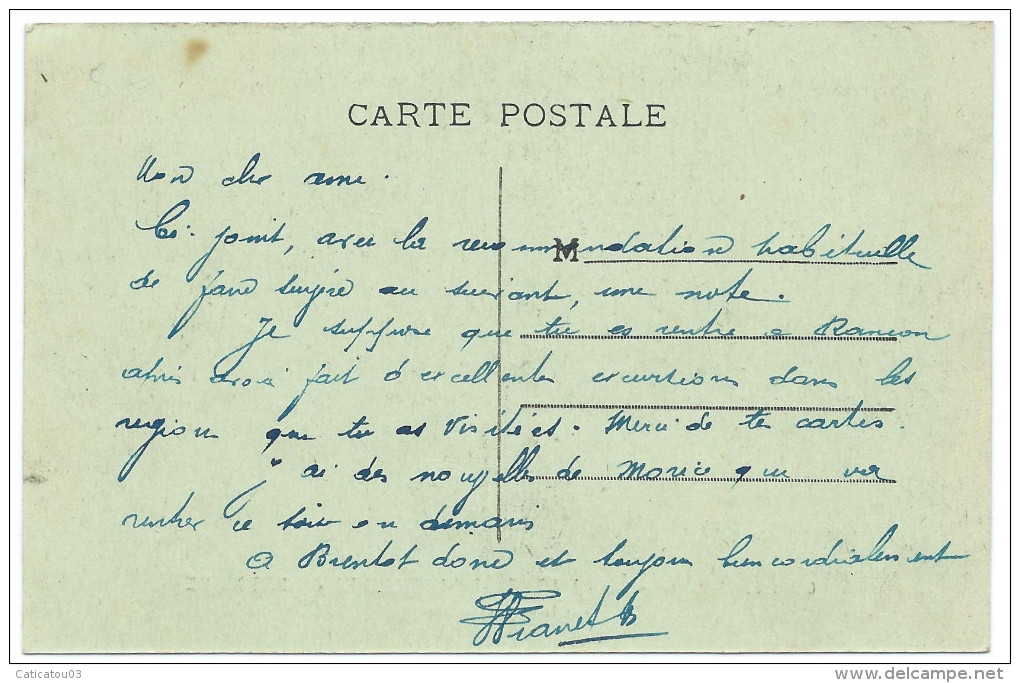 CARTE POSTALE
Mon cher ami.
Ci-joint, avec la recommandation habituelle
M
de faire au suivant, une note.
Je suppose que tu es rentré à
après avoir fait d'excellentes excursions dans les
régions que tu as visitées. Merci de tes cartes.
J'ai des nouvelles de que va
rentrer ce soir ou demain
A Bientot donc et toujours bien cordialement
Caticatou03
www.delcampe.net